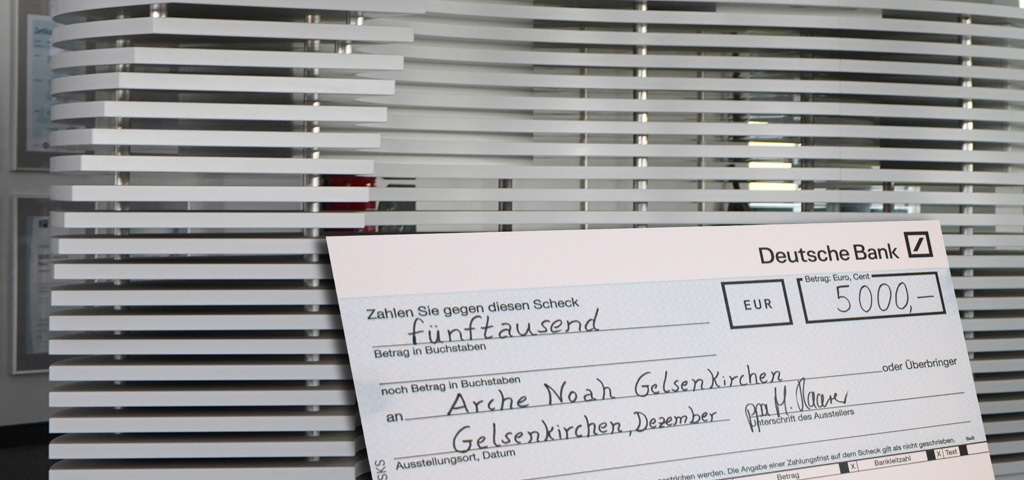 Deutsche Bank
Zahlen Sie gegen diesen Scheck
EUR
Betrag: Euro, Cent
5000,-
fünftausend
Betrag in Buchstaben
noch Betrag in Buchstaben
an Arche Noah Gelsenkirchen oder Überbringer
Gelsenkirchen, Dezember
ppa H.
Unterschrift des Ausstellers
Ausstellungsort, Datum
strichen werden. Die Angabe einer Zahlungsfrist auf dem Scheck gilt als nicht geschrieben.
Betrag X Bankleitzahl X Text